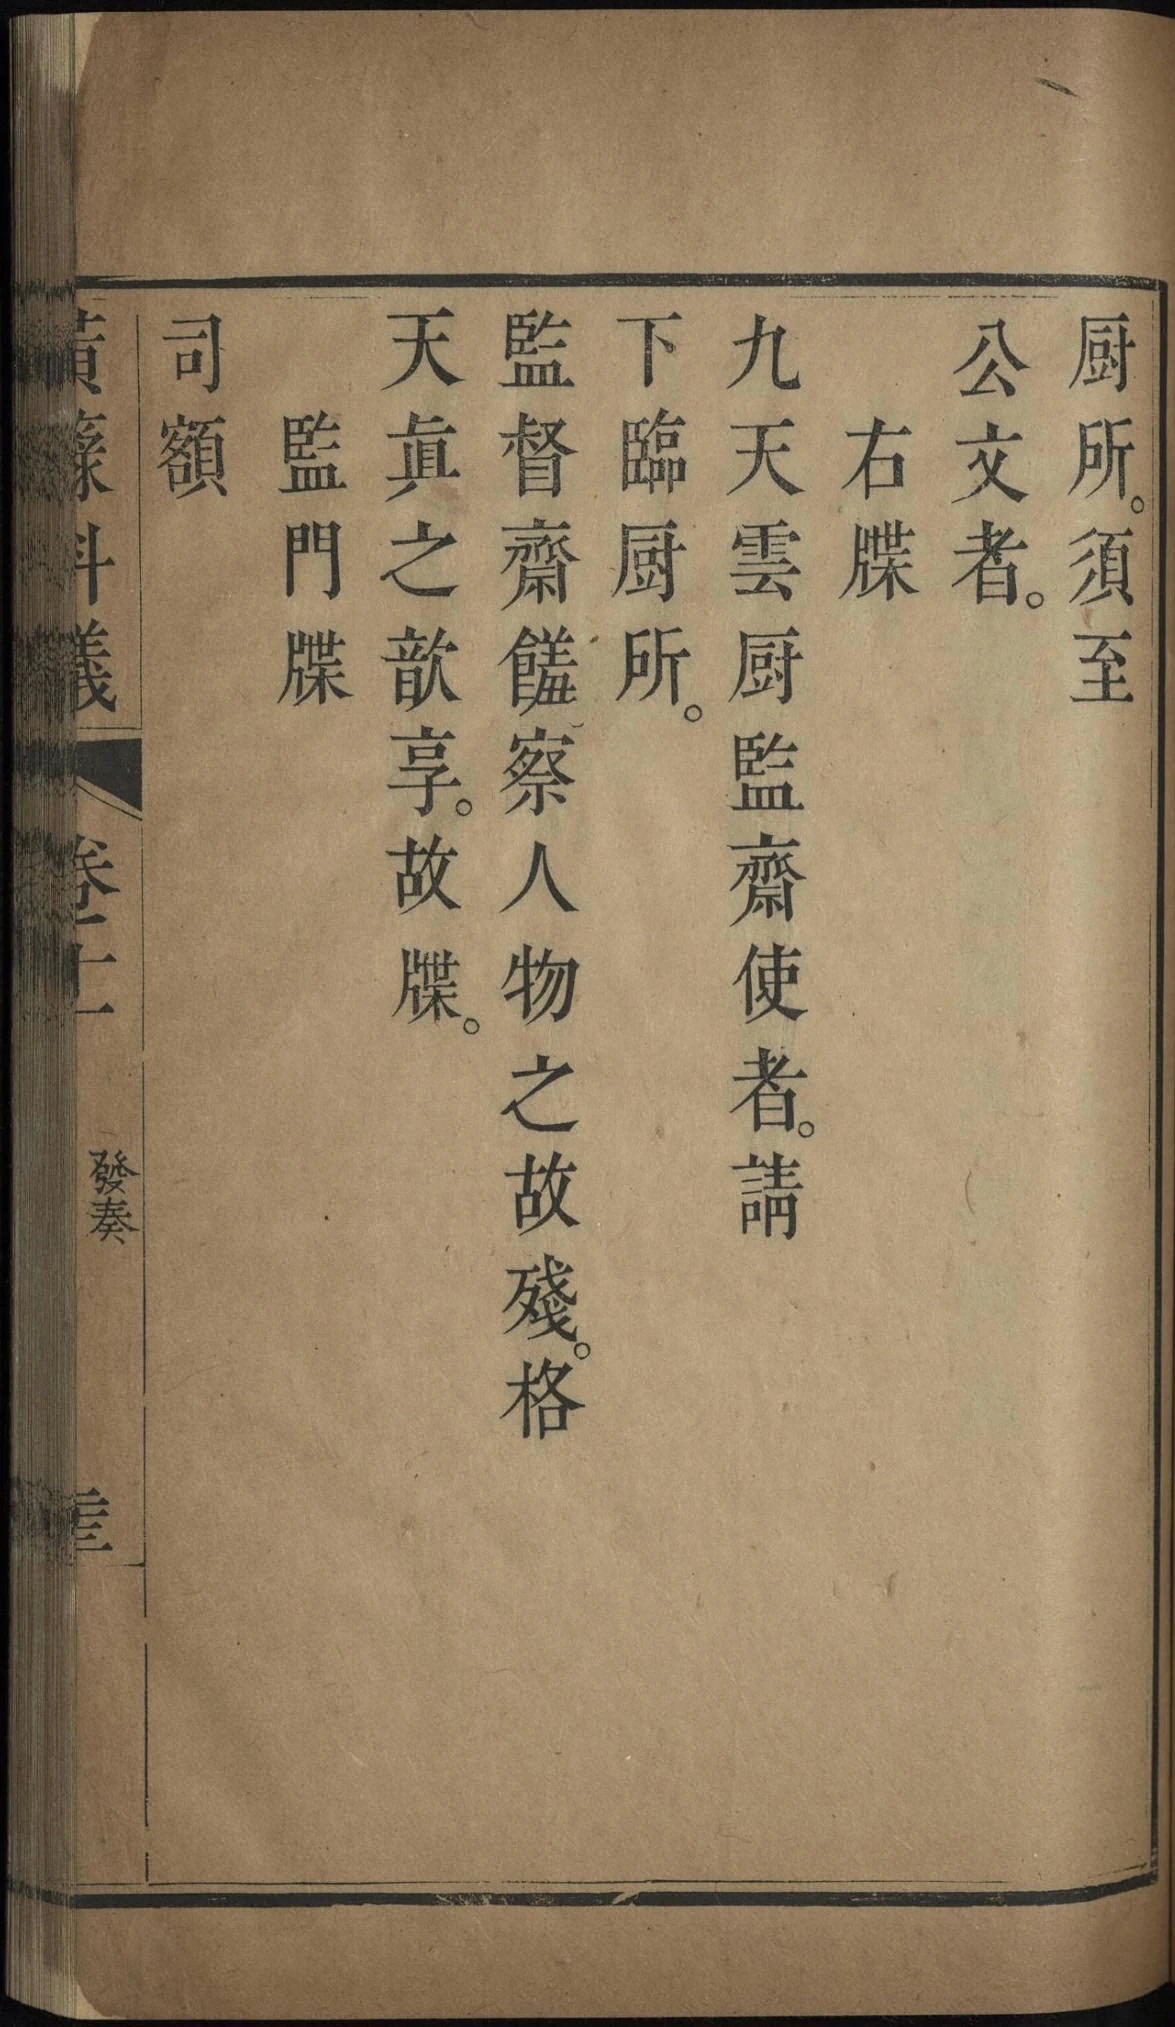 厨所。須至
公文者。
右牒
九天雲厨監齋使者。請
下臨厨所。
監督齋饈察人物之故殘。格
天眞之歆享。故牒。
監門牒
司額
黃籙科儀
卷十一
發奏